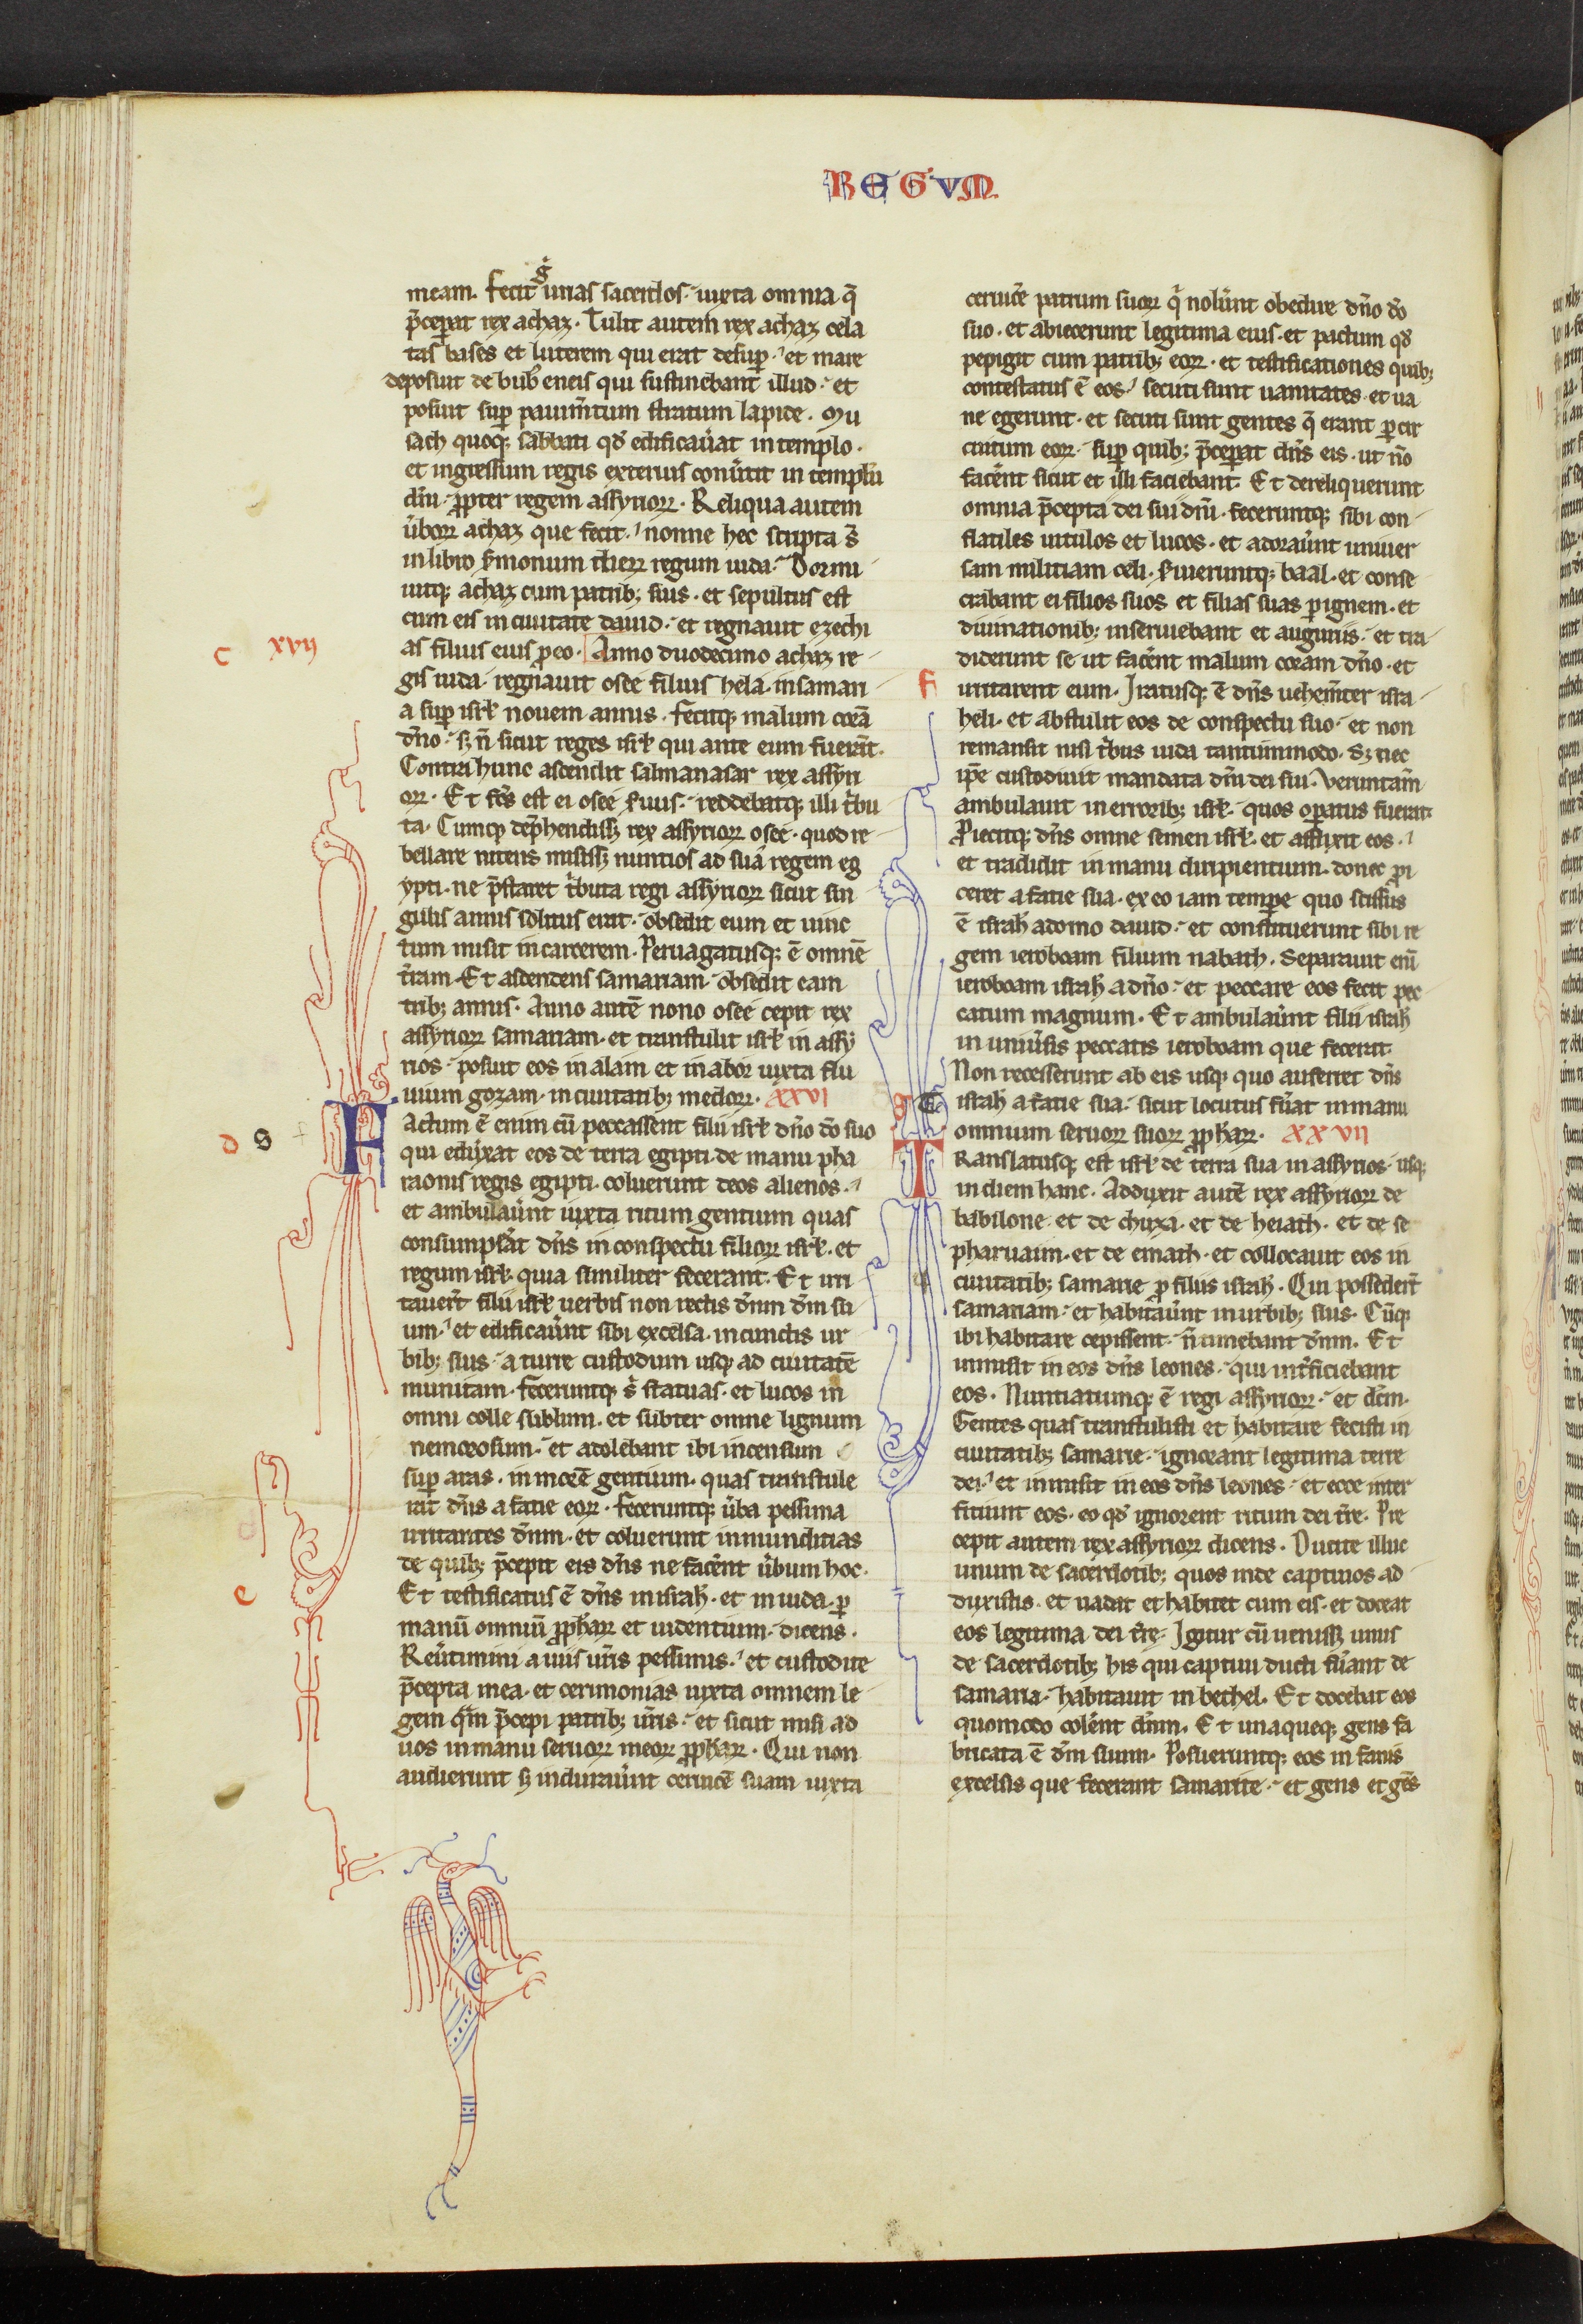 REGVM
meam. fecit g̊ urias sacerdos. iuxta omnia q̄
p̄ceꝑat rex achaz. Tulit autem rex achaz cela
tas bases et luterem qui erat desuꝑ. et mare
deposuit de bub; eneis qui sustinebant illud. et
posuit suꝑ pauim̄tum stratum lapide. Mu
sach quoq; sabbati qd̄ edificau̾at in templo.
et ingressum regis exterius conu̾tit in templū
dn̄i. ꝓpter regem assyrioꝝ. Reliqua autem
u̾boꝝ achaz que fecit. nonne hec scripta s̄
in libro s̾monum dieꝝ regum iuda. Dormi
uitq; achaz cum patrib; suis. et sepultus est
cum eis in ciuitate dauid. et regnauit ezechi
c xvij as filius eius ꝓ eo. Anno duodecimo achaz re
gis iuda. regnauit osee filius hela. in samari
a suꝑ isrl̄ nouem annis. fecitq; malum corā
dn̄o. sꝫ n̄ sicut reges isrl̄ qui ante eum fuerāt.
Contra hunc ascendit salmanasar rex assyri
oꝝ. Et fc̄s est ei osee s̾uus. reddebatq; illi t̾bu
ta. Cumq; dep̄hendissꝫ rex assyrioꝝ osee. quod re
bellare nitens misissꝫ nuntios ad suā regem eg
ypti. ne p̄staret t̾buta regi assyrioꝝ sicut sin
gulis annis solitus erat. obsedit eum et uinc
tum misit in carcerem. Peruagatusq; ē omnē
t̾ram. Et ascendens samariam. obsedit eam
trib; annis. Anno autē nono osee cepit rex
assyrioꝝ samariam. et transtulit isrl̄ in assy
rios. posuit eos in alam et in abor iuxta flu
uium gozam. in ciuitatib; medoꝝ. XXVI
d s F Actum ē enim cū peccassent filii isrl̄ dn̄o do̅ suo
qui eduxerat eos de terra egipti. de manu pha
raonis regis egipti. coluerunt deos alienos.
et ambulau̾nt iuxta ritum gentium quas
consumps̾at dn̄s in conspectu filioꝝ isrl̄. et
regum isrl̄. quia similiter fecerant. Et irri
tauer̄t filii isrl̄ uerbis non rectis dn̄m dm̄ su
um. et edificau̾nt sibi excelsa. in cunctis ur
bib; suis. a turre custodum usq; ad ciuitatē
munitam. feceruntq; s̾ statuas. et lucos in
omni colle sublimi. et subter omne lignum
nemorosum. et adolebant ibi incensum
suꝑ aras. in morē gentium. quas transtule
rat dn̄s a facie eoꝝ. feceruntq; u̾ba pessima
irritantes dn̄m. et coluerunt inmunditias
de quib; p̄cepit eis dn̄s ne facer̄nt u̾bum hoc.
e Et testificatus ē dn̄s in israhl̄. et in iuda. ꝑ
manū omniū ꝓphaꝝ et uidentium. dicens.
Reu̾timini a uiis ur̄is pessimis. et custodite
p̄cepta mea. et cerimonias iuxta omnem le
gem qu̾m p̄cepi patrib; ur̄is. et sicut misi ad
uos in manu seruoꝝ meoꝝ ꝓphaꝝ. Qui non
audierunt sꝫ indurau̾nt ceruicē suam iuxta
ceruicē patrum suoꝝ q̾ nolu̾nt obedire dn̄o do̅
suo. et abiecerunt legitima eius. et pactum qd̄
pepigit cum patrib; eoꝝ. et testificationes quib;
contestatus ē eos. secuti sunt uanitates. et ua
ne egerunt. et secuti sunt gentes q̄ erant ꝑ cir
cuitum eoꝝ. suꝑ quib; p̄ceꝑat dn̄s eis. ut no̅
facer̄nt sicut et illi faciebant. Et dereliquerunt
omnia p̄cepta dei sui dn̄i. feceruntq; sibi con
flatiles uitulos et lucos. et adorau̾nt uniuer
sam militiam celi. s̾uieruntq; baal. et conse
crabant ei filios suos et filias suas ꝑ ignem. et
diuinationib; inseruiebant et auguriis. et tra
diderunt se ut facer̄nt malum coram dn̄o. et
f irritarent eum. Iratusq; ē dn̄s uehem̄ter isra
heli. et abstulit eos de conspectu suo. et non
remansit nisi t̾bus iuda tantummodo. Sꝫ nec
ip̄e custodiuit mandata dn̄i dei sui. Veruntam̄
ambulauit in errorib; isrl̄. quos oꝑatus fuerat.
Proiecitq; dn̄s omne semen isrl̄. et afflixit eos.
et tradidit in manu diripientium. donec ꝓi
ceret a facie sua. ex eo iam tempore quo scissus
ē israhl̄ a domo dauid. et constituerunt sibi re
gem ieroboam filium nabath. Separauit eni̅
ieroboam israhl̄ a dn̄o. et peccare eos fecit pec
catum magnum. Et ambulau̾nt filii israhl̄
in uniu̾sis peccatis ieroboam que fecerat.
Non recesserunt ab eis usq; quo auferret dn̄s
israhl̄ a facie sua. sicut locutus fu̾at in manu
omnium seruoꝝ suoꝝ ꝓphaꝝ. XXVII
g T Ranslatusq; est isrl̄ de terra sua in assyrios. usq;
in diem hanc. Adduxit autē rex assyrioꝝ de
babilone. et de chuxa. et de heiath. et de se
pharuaim. et de emath. et collocauit eos in
ciuitatib; samarie ꝓ filiis israhl̄. Qui posseder̄t
samariam. et habitau̾nt in urbib; suis. Cūq;
ibi habitare cepissent. n̄ timebant dn̄m. Et
inmisit in eos dn̄s leones. qui int̾ficiebant
eos. Nuntiatumq; ē regi assyrioꝝ. et dc̄m.
Gentes quas transtulisti et habitare fecisti in
ciuitatib; samarie. ignorant legitima terre
dei. et inmisit in eos dn̄s leones. et ecce inter
ficiunt eos. eo qd̄ ignorent ritum dei t̾re. Pre
cepit autem rex assyrioꝝ dicens. Ducite illuc
unum de sacerdotib; quos inde captiuos ad
duxistis. et uadat et habitet cum eis. et doceat
eos legitima dei t̾re. Igitur cū uenissꝫ unus
de sacerdotib; his qui captiui ducti fu̾ant de
samaria. habitauit in bethel. Et docebat eos
quomodo coler̄nt dn̄m. Et unaqueq; gens fa
bricata ē dm̄ suum. Posueruntq; eos in fanis
excelsis que fecerant samarite. et gens et gēs